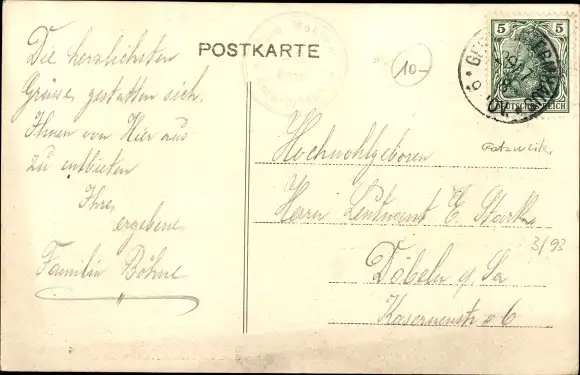 POSTKARTE
Die herzlichsten
Grüsse, gestatten sich,
Ihnen von Hier aus
zu entbieten
Ihre
ergebene
Familie Böhme
10-
5 5
DEUTSCHES REICH
Hochwohlgeboren
Herrn Leutnant E. Starke
Döbeln i/Sa
Kasernenstr 6
3/93